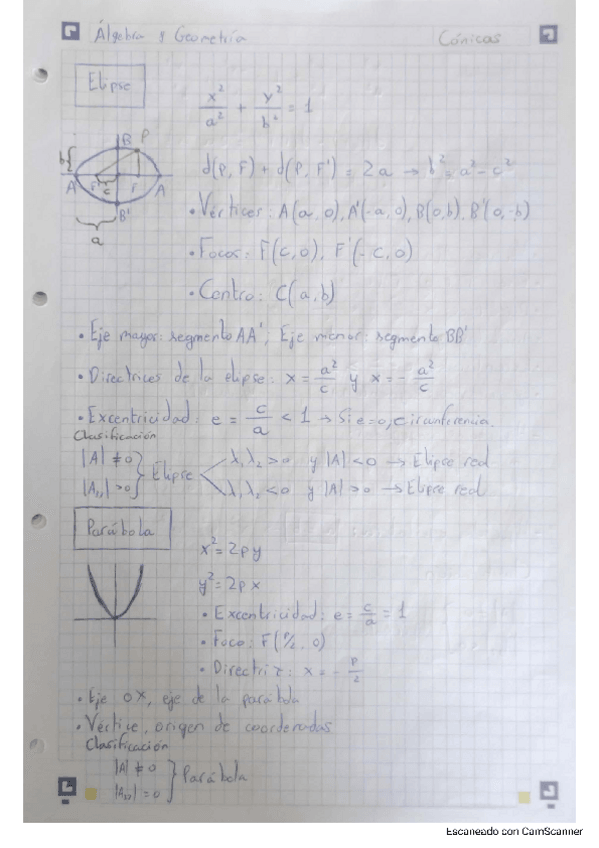 Álgebra y Geometría Cónicas
Elipse
x²/a² + y²/b² = 1
B P
b
A' F' c F A
B'
a
d(P, F) + d(P, F') = 2a → b² = a² - c²
• Vértices: A(a, 0), A'(-a, 0), B(0, b), B'(0, -b)
• Focos: F(c, 0), F'(-c, 0)
• Centro: C(a, b)
• Eje mayor: segmento AA'; Eje menor: segmento BB'
• Directrices de la elipse: x = a²/c y x = - a²/c
• Excentricidad: e = c/a < 1 → Si e=0, circunferencia.
Clasificación
|A| ≠ 0
|A₃₃| > 0 } Elipse
λ₁ λ₂ > 0 y |A| < 0 → Elipse real
λ₁ λ₂ < 0 y |A| > 0 → Elipse real
Parábola
x² = 2py
y² = 2px
• Excentricidad: e = c/a = 1
• Foco: F(P/2, 0)
• Directriz: x = - P/2
• Eje OX, eje de la parábola
• Vértice, origen de coordenadas
Clasificación
|A| ≠ 0
|A₃₃| = 0 } Parábola
Escaneado con CamScanner